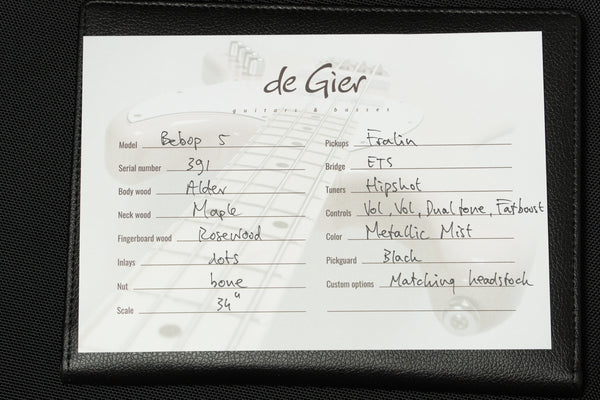 de Gier
guitars & basses
Model Bebop 5
Serial number 391
Body wood Alder
Neck wood Maple
Fingerboard wood Rosewood
Inlays dots
Nut bone
Scale 34"
Pickups Fralin
Bridge ETS
Tuners Hipshot
Controls Vol, Vol, Dualtone, Fatboost
Color Metallic Mist
Pickguard Black
Custom options Matching headstock